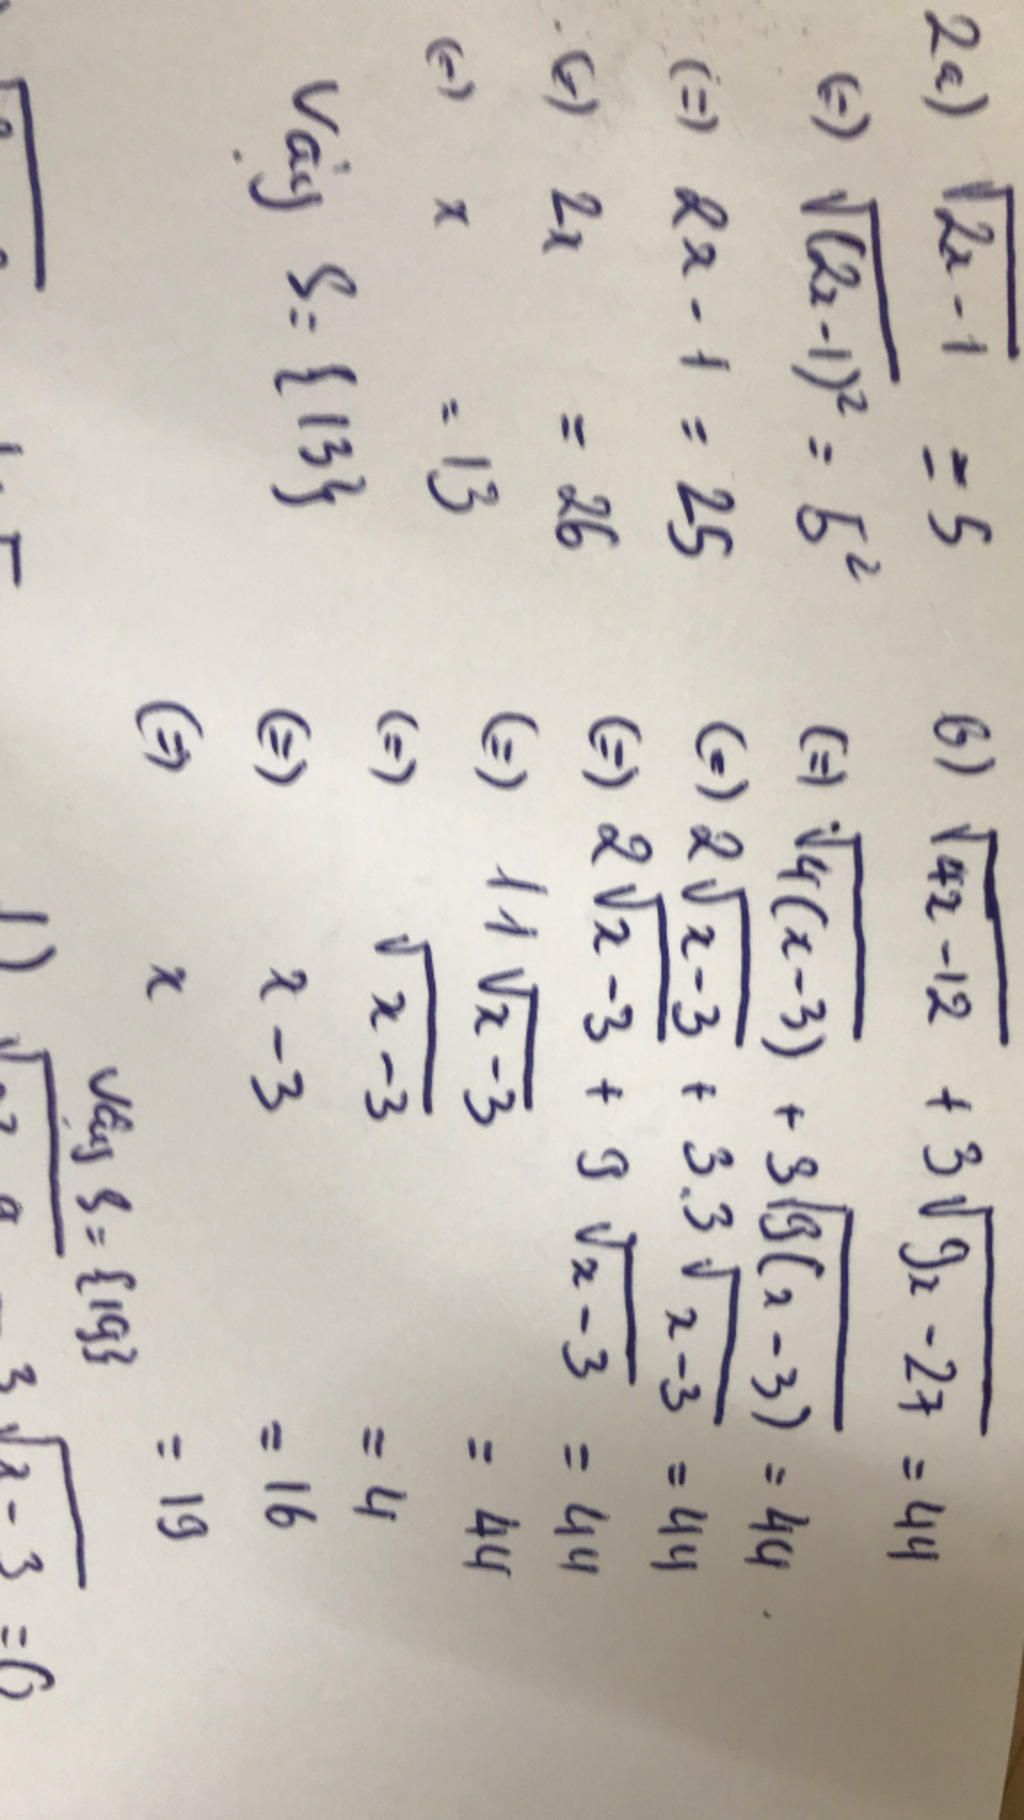 2a) √2x-1 = 5
(=) √(2x-1)² = 5²
(=) 2x-1 = 25
(=) 2x = 26
(=) x = 13
Vậy S={13}
b) √4x-12 + 3√9x-27 = 44
(=) √4(x-3) + 3√9(x-3) = 44
(=) 2√x-3 + 3.3√x-3 = 44
(=) 2√x-3 + 9√x-3 = 44
(=) 11√x-3 = 44
(=) √x-3 = 4
(=) x-3 = 16
(=) x = 19
Vậy S={19}